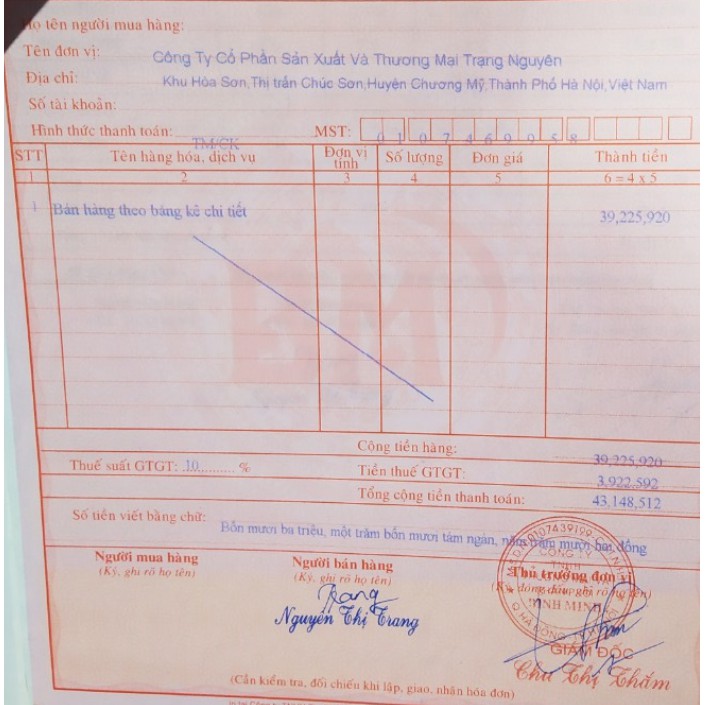 Họ tên người mua hàng:
Tên đơn vị: Công Ty Cổ Phần Sản Xuất Và Thương Mại Trạng Nguyên
Địa chỉ: Khu Hòa Sơn,Thị trấn Chúc Sơn,Huyện Chương Mỹ,Thành Phố Hà Nội,Việt Nam
Số tài khoản:
Hình thức thanh toán: TM/CK MST: 0107469958
STT Tên hàng hóa, dịch vụ Đơn vị tính Số lượng Đơn giá Thành tiền
1 2 3 4 5 6 = 4 x 5
1 Bán hàng theo bảng kê chi tiết 39,225,920
BM
Cộng tiền hàng: 39,225,920
Thuế suất GTGT: 10 % Tiền thuế GTGT: 3,922,592
Tổng cộng tiền thanh toán: 43,148,512
Số tiền viết bằng chữ: Bốn mươi ba triệu, một trăm bốn mươi tám ngàn, năm trăm mười hai đồng
Người mua hàng Người bán hàng Thủ trưởng đơn vị
(Ký, ghi rõ họ tên) (Ký, ghi rõ họ tên) (Ký, đóng dấu, ghi rõ họ tên)
0107439199
CÔNG TY
TNHH
BÌNH MINH
Q.HÀ ĐÔNG
Trang
Nguyễn Thị Trang
GIÁM ĐỐC
Chu Thị Thắm
(Cần kiểm tra, đối chiếu khi lập, giao, nhận hóa đơn)